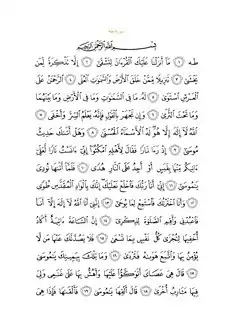 سورة طه
بِسْمِ ٱللَّهِ ٱلرَّحْمَٰنِ ٱلرَّحِيمِ
طه ١ مَآ أَنزَلْنَا عَلَيْكَ ٱلْقُرْءَانَ لِتَشْقَىٰٓ ٢ إِلَّا تَذْكِرَةً لِّمَن
يَخْشَىٰ ٣ تَنزِيلًا مِّمَّنْ خَلَقَ ٱلْأَرْضَ وَٱلسَّمَٰوَٰتِ ٱلْعُلَى ٤ ٱلرَّحْمَٰنُ عَلَى
ٱلْعَرْشِ ٱسْتَوَىٰ ٥ لَهُۥ مَا فِى ٱلسَّمَٰوَٰتِ وَمَا فِى ٱلْأَرْضِ وَمَا بَيْنَهُمَا
وَمَا تَحْتَ ٱلثَّرَىٰ ٦ وَإِن تَجْهَرْ بِٱلْقَوْلِ فَإِنَّهُۥ يَعْلَمُ ٱلسِّرَّ وَأَخْفَى ٧
ٱللَّهُ لَآ إِلَٰهَ إِلَّا هُوَ لَهُ ٱلْأَسْمَآءُ ٱلْحُسْنَىٰ ٨ وَهَلْ أَتَىٰكَ حَدِيثُ
مُوسَىٰٓ ٩ إِذْ رَءَا نَارًا فَقَالَ لِأَهْلِهِ ٱمْكُثُوٓا۟ إِنِّىٓ ءَانَسْتُ نَارًا لَّعَلِّىٓ
ءَاتِيكُم مِّنْهَا بِقَبَسٍ أَوْ أَجِدُ عَلَى ٱلنَّارِ هُدًى ١٠ فَلَمَّآ أَتَىٰهَا نُودِىَ
يَٰمُوسَىٰٓ ١١ إِنِّىٓ أَنَا۠ رَبُّكَ فَٱخْلَعْ نَعْلَيْكَ إِنَّكَ بِٱلْوَادِ ٱلْمُقَدَّسِ طُوًى
١٢ وَأَنَا ٱخْتَرْتُكَ فَٱسْتَمِعْ لِمَا يُوحَىٰٓ ١٣ إِنَّنِىٓ أَنَا ٱللَّهُ لَآ إِلَٰهَ إِلَّآ أَنَا۠
فَٱعْبُدْنِى وَأَقِمِ ٱلصَّلَوٰةَ لِذِكْرِىٓ ١٤ إِنَّ ٱلسَّاعَةَ ءَاتِيَةٌ أَكَادُ
أُخْفِيهَا لِتُجْزَىٰ كُلُّ نَفْسٍۭ بِمَا تَسْعَىٰ ١٥ فَلَا يَصُدَّنَّكَ عَنْهَا مَن لَّا
يُؤْمِنُ بِهَا وَٱتَّبَعَ هَوَىٰهُ فَتَرْدَىٰ ١٦ وَمَا تِلْكَ بِيَمِينِكَ يَٰمُوسَىٰ
١٧ قَالَ هِىَ عَصَاىَ أَتَوَكَّؤُا۟ عَلَيْهَا وَأَهُشُّ بِهَا عَلَىٰ غَنَمِى وَلِىَ
فِيهَا مَـَٔارِبُ أُخْرَىٰ ١٨ قَالَ أَلْقِهَا يَٰمُوسَىٰ ١٩ فَأَلْقَىٰهَا فَإِذَا هِىَ